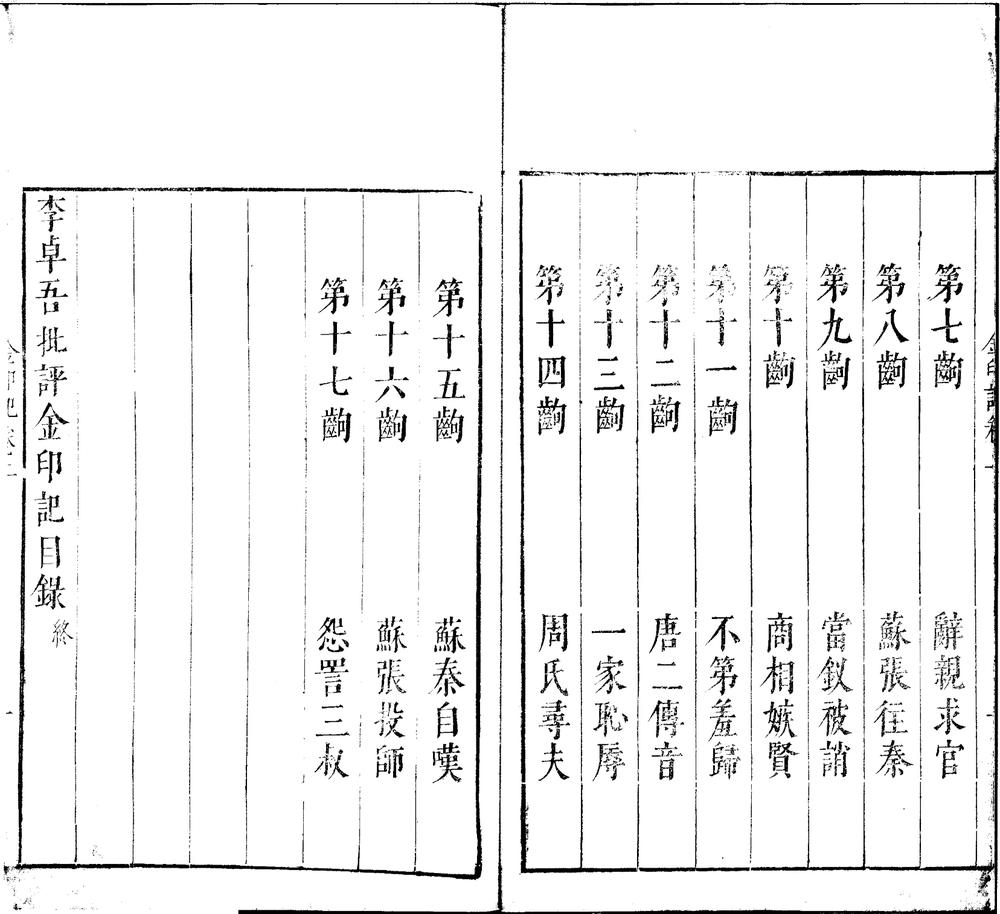 第七齣 辭親求官
第八齣 蘇張往秦
第九齣 當釵被誚
第十齣 商相嫉賢
第十一齣 不第羞歸
第十二齣 唐二傳音
第十三齣 一家恥辱
第十四齣 周氏尋夫
第十五齣 蘇秦自嘆
第十六齣 蘇張投師
第十七齣 怨詈三叔
李卓吾批評金印記目錄終